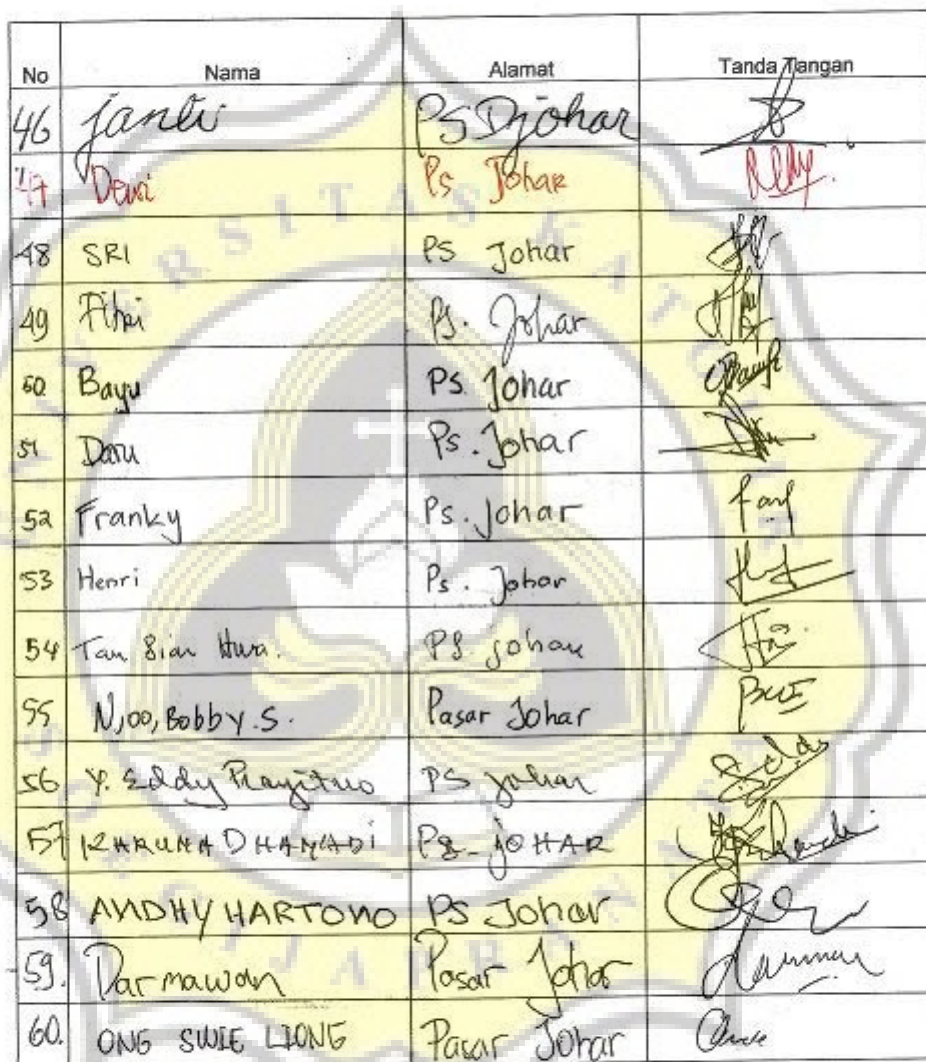 No Nama Alamat Tanda Tangan
46 janti Ps Djohar
47 Dewi Ps Johar
48 SRI PS Johar
49 Fitri Ps. Johar
50 Bayu PS. Johar
51 Danu Ps. Johar
52 Franky Ps. Johar
53 Henri Ps. Johar
54 Tan Sian Hwa. PS. Johar
55 Njoo, Bobby.S. Pasar Johar
56 Y. Eddy Prayitno PS Johar
57 KARUNA DHAMADI Ps. JOHAR
58 ANDHY HARTONO PS Johar
59. Darmawan Pasar Johar
60. ONG SWIE LIONG Pasar Johar